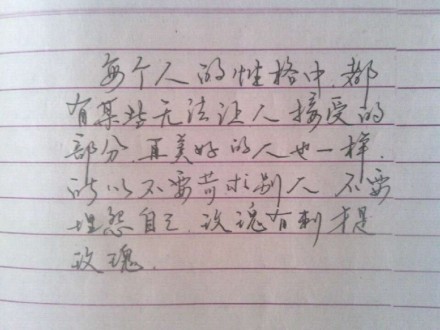 每个人的性格中.都
有某些无法让人接受的
部分.再美好的人也一样.
所以不要苛求别人 不要
埋怨自己.玫瑰有刺才是
玫瑰.